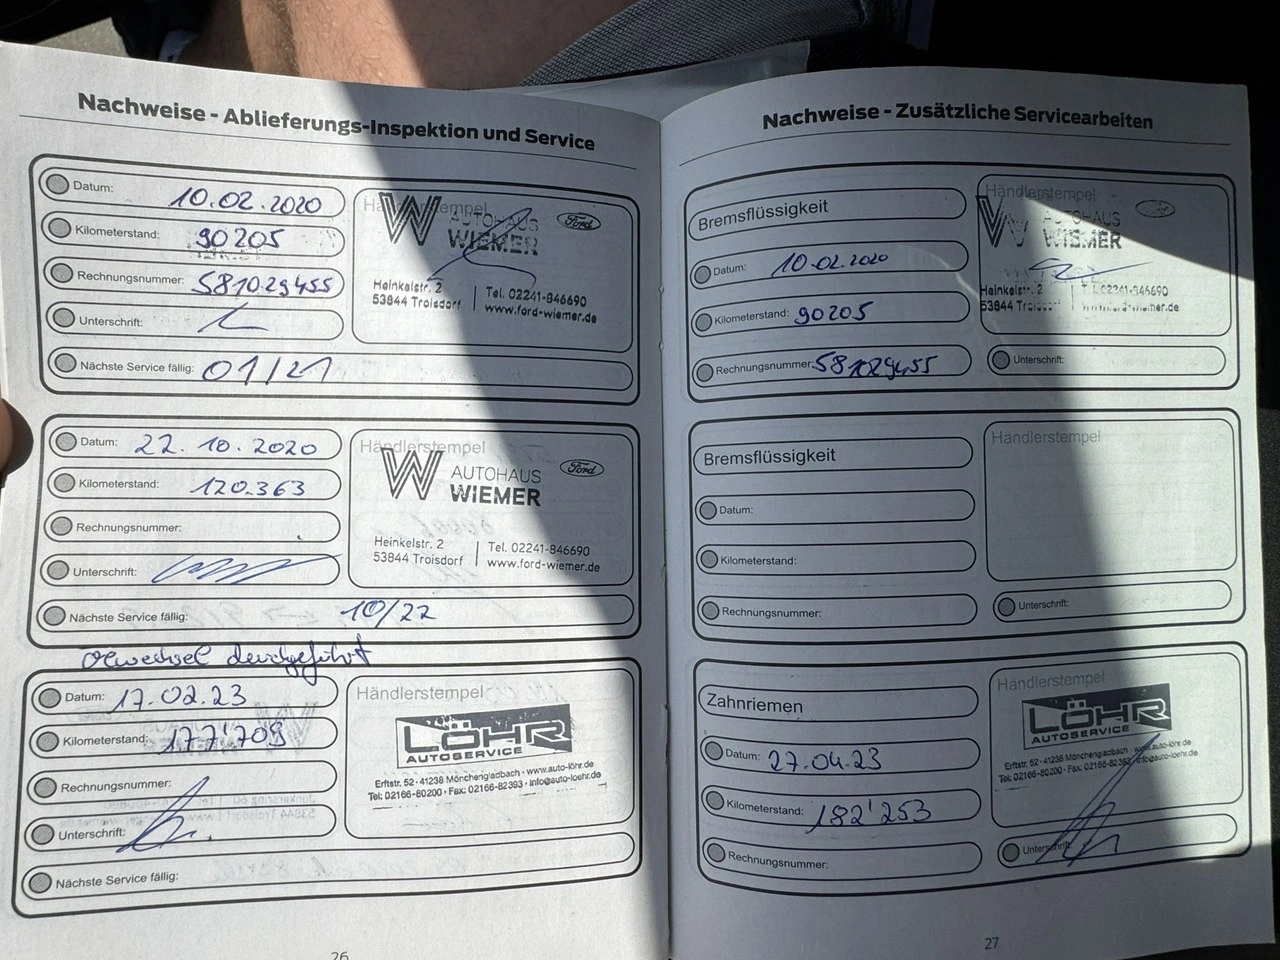 Nachweise - Ablieferungs-Inspektion und Service
Datum: 10.02.2020
Kilometerstand: 90205
Rechnungsnummer: 581029455
Unterschrift:
Nächste Service fällig: 01/21
Händlerstempel
W AUTOHAUS WIEMER Ford
Heinkelstr. 2 | Tel. 02241-846690
53844 Troisdorf | www.ford-wiemer.de
Datum: 22.10.2020
Kilometerstand: 120.363
Rechnungsnummer:
Unterschrift:
Nächste Service fällig: 10/22
Händlerstempel
W AUTOHAUS WIEMER Ford
Heinkelstr. 2 | Tel. 02241-846690
53844 Troisdorf | www.ford-wiemer.de
Ölwechsel durchgeführt
Datum: 17.02.23
Kilometerstand: 177'709
Rechnungsnummer:
Unterschrift:
Nächste Service fällig:
Händlerstempel
LÖHR
AUTOSERVICE
Erftstr. 52 · 41238 Mönchengladbach · www.auto-löhr.de
Tel: 02166-80200 · Fax: 02166-82393 · info@auto-loehr.de
26
Nachweise - Zusätzliche Servicearbeiten
Bremsflüssigkeit
Datum: 10.02.2020
Kilometerstand: 90205
Rechnungsnummer: 581029455
Händlerstempel
W AUTOHAUS WIEMER
Heinkelstr. 2 | Tel. 02241-846690
53844 Troisdorf | www.ford-wiemer.de
Unterschrift:
Bremsflüssigkeit
Datum:
Kilometerstand:
Rechnungsnummer:
Händlerstempel
Unterschrift:
Zahnriemen
Datum: 27.04.23
Kilometerstand: 182'253
Rechnungsnummer:
Händlerstempel
LÖHR
AUTOSERVICE
Erftstr. 52 · 41238 Mönchengladbach · www.auto-löhr.de
Tel: 02166-80200 · Fax: 02166-82393 · info@auto-loehr.de
Unterschrift:
27